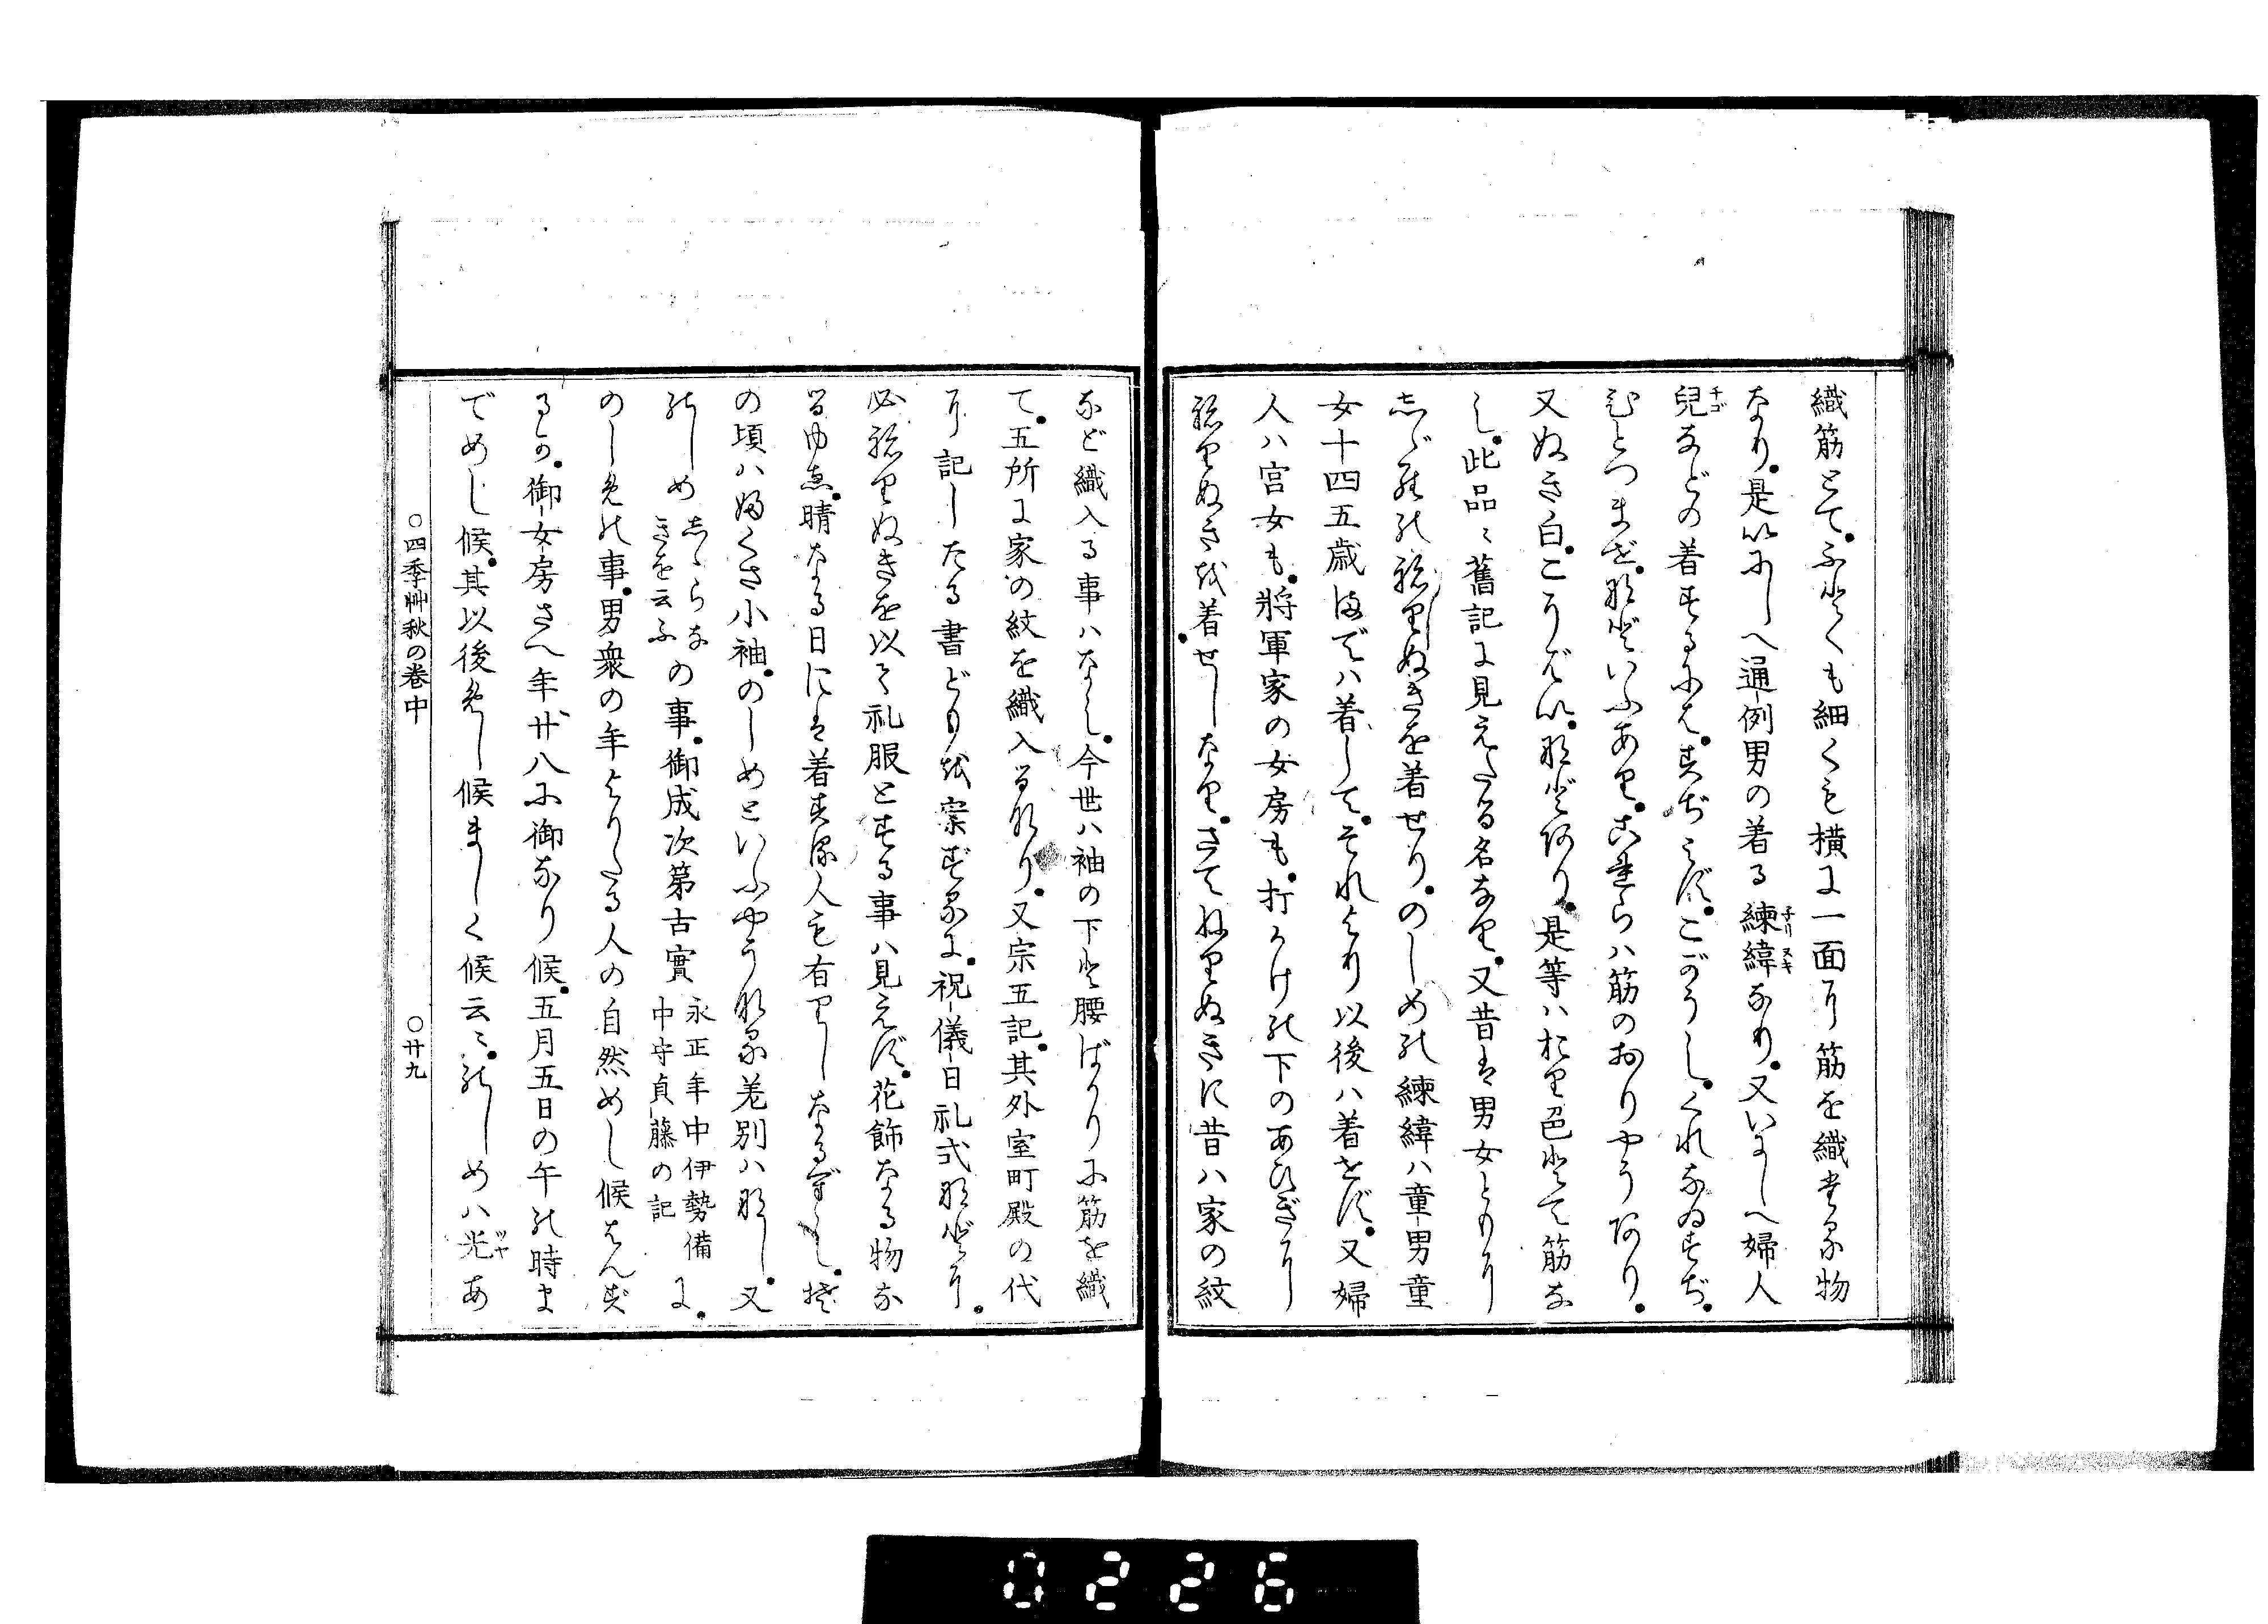 織筋とて。ふとくも細くも横に一面に筋を織たる物
なり。是いにしへ通例男の着る練緯なり。又いにしへ婦人
兒などの着するには。すぢみず。こがうし。くれなゐすぢ。
むとつまぜ。などいふあり。これらハ筋のおりやうなり。
又ぬき白。こうばい。などあり。是等ハおり色とて筋な
し。此品々舊記に見えたる名なり。又昔は男女ともに
しゞらのねりぬきを着せり。のしめの練緯ハ童男童
女十四五歳までハ着して。それより以後ハ着せず。又婦
人ハ宮女も。將軍家の女房も。打かけの下のあひぎに
ねりぬきを着せしなり。さてねりぬきに昔ハ家の紋
など織入る事ハなし。今世ハ袖の下と腰ばかりに筋を織
て。五所に家の紋を織入るなり。又宗五記。其外室町殿の代
に記したる書どもを案ずるに。祝儀日礼式などに。
必ねりぬきを以て礼服とする事ハ見えず。花飾なる物な
るゆゑ。晴なる日には着する人も有りしなるべし。扨
の頃ハ婦くさ小袖。のしめといふやうなる差別ハなし。又
のしめ しゞらなきを云ふ の事。御成次第古實 永正年中伊勢備中守貞藤の記 に。
のしめの事。男衆の年よりたる人の自然めし候はんず
るか。御女房さへ年廿八に御なり候。五月五日の午の時ま
でめし候。其以後めし候ましく候云々。のしめハ光あ
チゴ
子リ ヌキ
ツヤ
○四季艸秋の巻中 ○廿九
0226